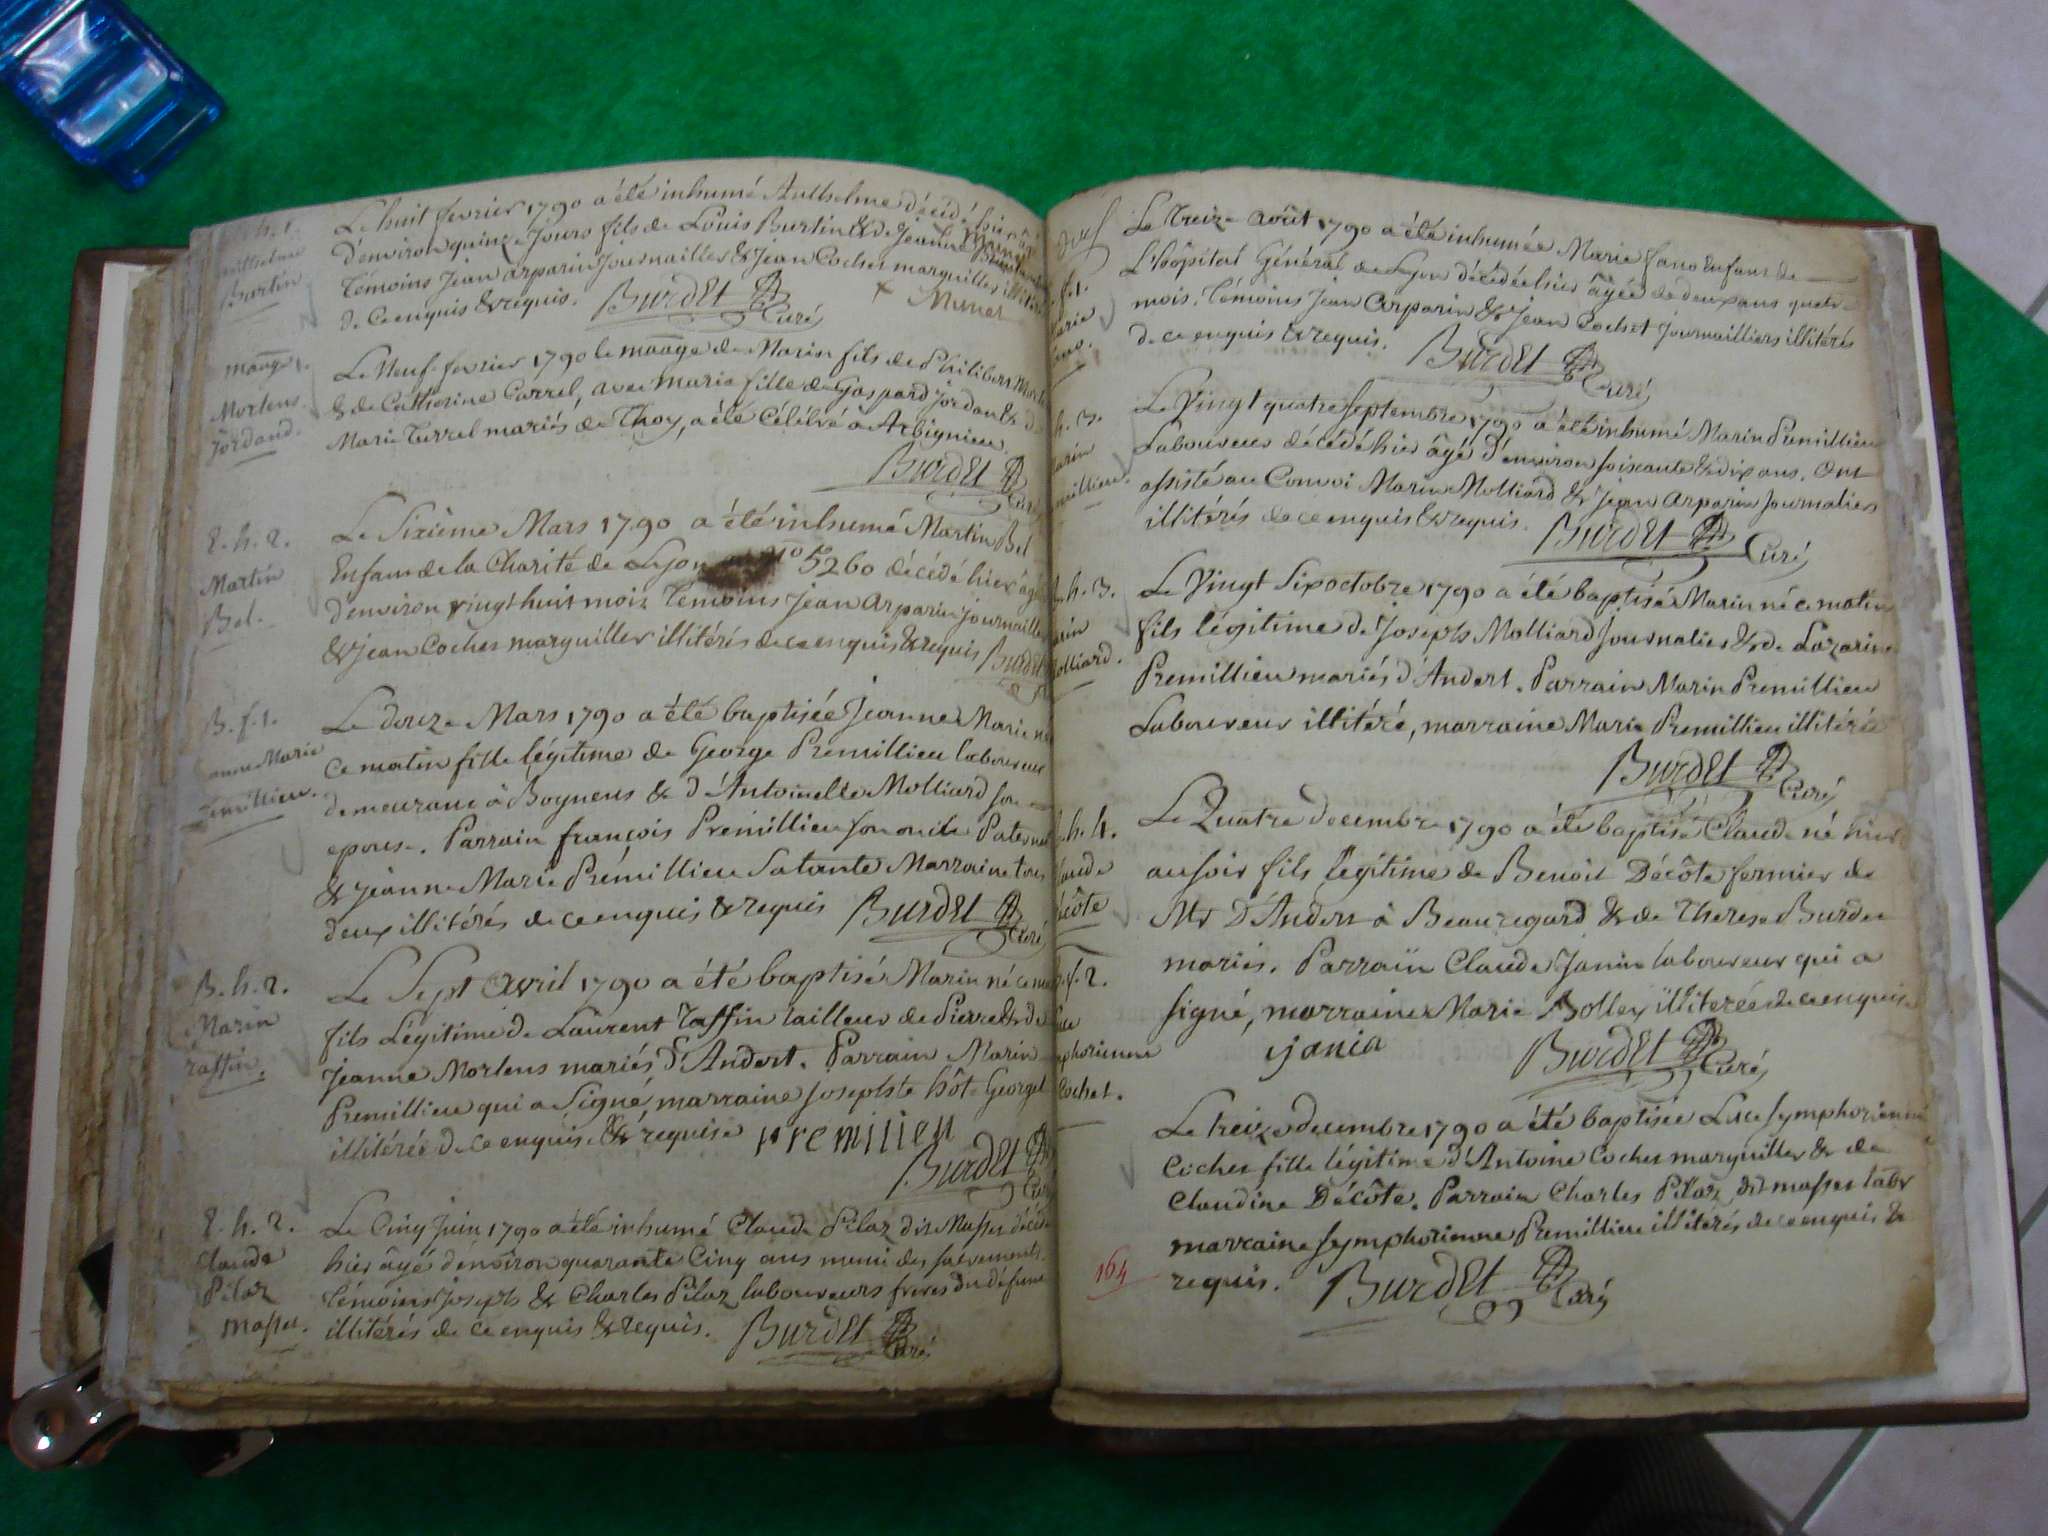 Le huit fevrier 1790 a été inhumé Anthelme décédé hier
d'environ quinze Jours fils de Louis Burtin & de Jeanne
Témoins Jean arparin Journaillier & Jean Cochet marguillier illitérés
de ce enquis & requis. Burdet Curé
Anthelme
Burtin
Le Neuf fevrier 1790 le mãage de Marin fils de Philibert
& de Catherine Carrel, avec marie fille de Gaspard Jordan & de
Marie Turrel mariés de Thoy, a été Célébré a Arbignieu.
Burdet Curé
mãage
Mortens
Jordand.
Le Sixième Mars 1790 a été inhumé Martin Bel
Enfant de la Charité de Lyon N° 5260 décédé hier agé
D'environ vingt huit mois Temoins Jean arparin journaillier
& jean Cochet marguillier illitérés de ce enquis & requis Burdet
E. h. 2.
Martin
Bel.
Le douze Mars 1790 a été baptisée Jeanne Marie née
Ce matin fille légitime de George Premillieu laboureur
demeurant à Bognens & d'Antoinette Molliard son
epouse. Parrain françois Premillieu son oncle Paternel
& jeanne Marie Prémillieu Sa tante Marraine tous
deux illitérés de ce enquis & requis Burdet Curé
B. f. 1.
Jeanne Marie
Premillieu.
Le Sept Avril 1790 a été baptisé Marin né ce matin
fils Légitime de Laurent Raffin tailleur de Pierre & de
Jeanne Mortens mariés d'Andert. Parrain Marin
Premillieu qui a Signé, marraine Josephte hôte Georget
illitérée de ce enquise & requise premilieu
Burdet Curé
B. h. 2.
Marin
raffin.
Le Cinq Juin 1790 a été inhumé Claude Pilaz dit Masset décédé
hier âgé d'environ quarante Cinq ans muni des sacrements.
témoins Joseph & Charles Pilaz laboureurs freres du défunt
illitérés de ce enquis & requis. Burdet Curé
E. h. 2.
Claude
Pilaz
Masset.
Le Treize Août 1790 a été inhumée Marie fano Enfant de
L'hôpital Général de Lyon décédée hier âgée de deux ans quatre
mois. Témoins Jean Arparin & Jean Cochet Journailliers illitérés
de ce enquis & requis. Burdet Curé
Le Vingt quatre Septembre 1790 a été inhumé Marin Premillieu
Laboureur décédé hier âgé d'environ soixante & dix ans. Ont
assisté au Convoi Marin Molliard & Jean Arparin Journalier
illitérés de ce enquis & requis. Burdet Curé
h. 3.
Le Vingt Six octobre 1790 a été baptisé Marin né ce matin
fils légitime de Joseph Molliard Journalier & de Lazarine
Premillieu mariés d'Andert. Parrain Marin Premillieu
Laboureur illitéré, marraine Marie Premillieu illitérée
Burdet Curé
h. 3.
Molliard.
Le Quatre decembre 1790 a été baptisé Claude né hier
au soir fils légitime de Benoit Décôte fermier de
Mr D'Andert à Beauregard & de Therese Burdet
mariés. Parrain Claude Janin laboureur qui a
signé, marraine Marie Bollex illiterée de ce enquise
Janin Burdet Curé
h. 4.
Claude
Décôte
Le treize decembre 1790 a été baptisée Luce Symphorienne
Cochet fille légitime d'Antoine Cochet marguillier & de
Claudine Décôte. Parrain Charles Pilaz dit masset labr
marraine Symphorienne Premillieu illitérés de ce enquis &
requis. Burdet Curé
f. 2.
Luce
Symphorienne
Cochet.
164